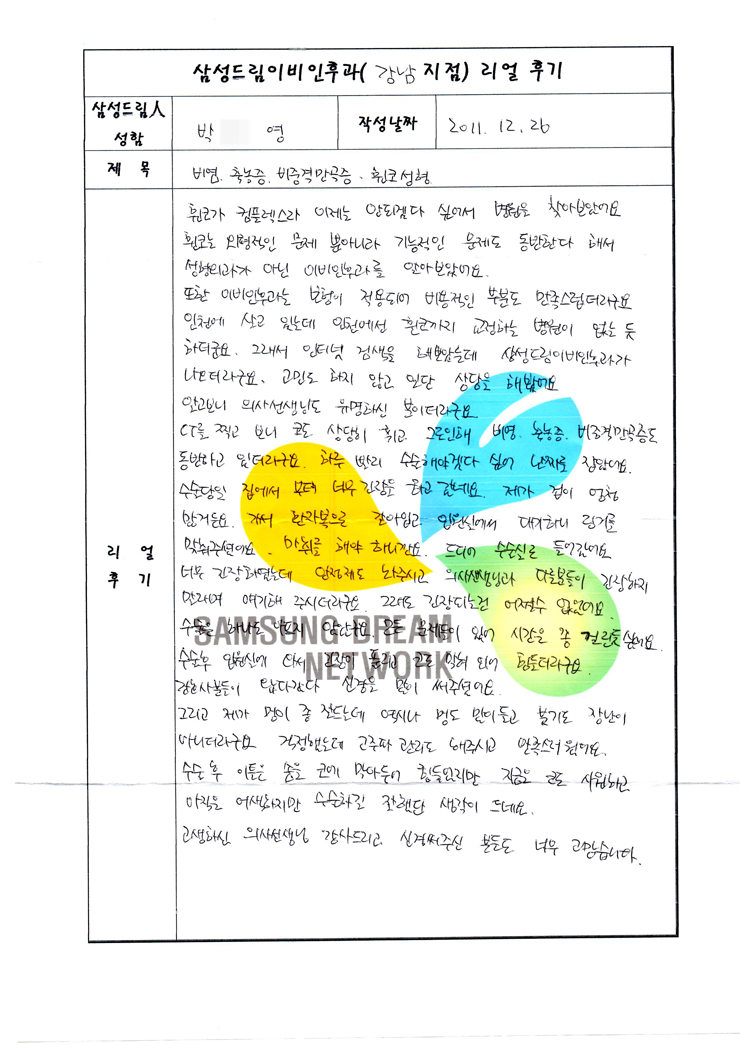 삼성드림이비인후과( 강남 지점) 리얼 후기
삼성드림人 성함
박 영
작성날짜
2011. 12. 26
제 목
비염, 축농증, 비중격만곡증, 휜코성형
리 얼 후 기
휜코가 컴플렉스라 이제는 안되겠다 싶어서 병원을 찾아보았어요
휜코는 외형적인 문제 뿐아니라 기능적인 문제도 동반한다 해서
성형외과가 아닌 이비인후과를 알아보았어요.
또한 이비인후과는 보험이 적용되어 비용적인 부분도 만족스럽더라구요
인천에 살고 있는데 인천에선 휜코까지 교정하는 병원이 없는 듯
하더군요. 그래서 인터넷 검색을 해보았는데 삼성드림이비인후과가
나오더라구요. 고민도 하지 않고 일단 상담을 해봤어요
알고보니 의사선생님도 유명하신 분이더라구요.
CT를 찍고 보니 코도 상당히 휘고 그로인해 비염, 축농증, 비중격만곡증도
동반하고 있더라구요. 하루 빨리 수술해야겠다 싶어 날짜를 잡았어요.
수술당일 집에서 부터 너무 긴장을 하고 갔네요. 제가 겁이 엄청
많거든요. 가서 환자복으로 갈아입고 입원실에서 대기하니 링거를
맞춰주셨어요. 마취를 해야 하니깐요. 드디어 수술실로 들어갔어요
너무 긴장하였는데 안정제도 놔주시고 의사선생님과 다른분들이 긴장하지
말라며 얘기해 주시더라구요. 그래도 긴장되는건 어쩔수 없었어요.
수술을 해서도 아프지 않았구요. 모든 문제들이 있어 시간은 좀 걸린듯 싶어요.
수술후 입원실에 다시 긴장이 풀리고 코도 막혀 있어 힘들더라구요.
간호사분들이 왔다갔다 신경을 많이 써주셨어요.
그리고 제가 멍이 좀 잘드는데 역시나 멍도 많이들고 붓기도 장난이
아니더라구요. 걱정했는데 고주파 관리도 해주시고 만족스러웠어요.
수술 후 이틀은 솜을 코에 막아두어 힘들었지만 지금은 코도 시원하고
아직은 어색하지만 수술하길 잘했단 생각이 드네요.
고생하신 의사선생님 감사드리고, 신경써주신 분들도 너무 고맙습니다.
SAMSUNG DREAM
NETWORK